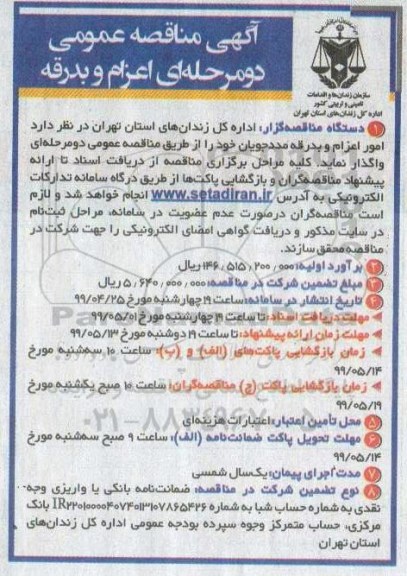 آگهی مناقصه عمومی
دومرحله‌ای اعزام و بدرقه
سازمان زندان‌ها و اقدامات
تامینی و تربیتی کشور
اداره کل زندان‌های استان تهران
۱ دستگاه مناقصه‌گزار: اداره کل زندان‌های استان تهران در نظر دارد
امور اعزام و بدرقه مددجویان خود را از طریق مناقصه عمومی دومرحله‌ای
واگذار نماید. کلیه مراحل برگزاری مناقصه از دریافت اسناد تا ارائه
پیشنهاد مناقصه‌گران و بازگشایی پاکت‌ها از طریق درگاه سامانه تدارکات
الکترونیکی به آدرس www.setadiran.ir انجام خواهد شد و لازم
است مناقصه‌گران درصورت عدم عضویت در سامانه، مراحل ثبت‌نام
در سایت مذکور و دریافت گواهی امضای الکترونیکی را جهت شرکت در
مناقصه محقق سازند.
۲ برآورد اولیه: ۱۴۶،۵۱۵،۲۰۰،۰۰۰ ریال
۳ مبلغ تضمین شرکت در مناقصه: ۵،۶۴۰،۰۰۰،۰۰۰ ریال
۴ تاریخ انتشار در سامانه: ساعت ۱۹ چهارشنبه مورخ ۹۹/۰۴/۲۵
مهلت دریافت اسناد: تا ساعت ۱۹ چهارشنبه مورخ ۹۹/۰۵/۰۱
مهلت زمان ارائه پیشنهاد: تا ساعت ۱۹ دوشنبه مورخ ۹۹/۰۵/۱۳
زمان بازگشایی پاکت‌های (الف) و (ب): ساعت ۱۰ سه‌شنبه مورخ
۹۹/۰۵/۱۴
زمان بازگشایی پاکت (ج) مناقصه‌گران: ساعت ۱۰ صبح یکشنبه مورخ
۹۹/۰۵/۱۹
۵ محل تأمین اعتبار: اعتبارات هزینه‌ای
۶ مهلت تحویل پاکت ضمانت‌نامه (الف): ساعت ۹ صبح سه‌شنبه مورخ
۹۹/۰۵/۱۴
۷ مدت اجرای پیمان: یک‌سال شمسی
۸ نوع تضمین شرکت در مناقصه: ضمانت‌نامه بانکی یا واریزی وجه
نقدی به شماره حساب شبا به شماره IR۲۲۰۱۰۰۰۰۴۰۷۴۰۱۳۱۰۷۸۶۵۴۲۶ بانک
مرکزی، حساب متمرکز وجوه سپرده بودجه عمومی اداره کل زندان‌های
استان تهران